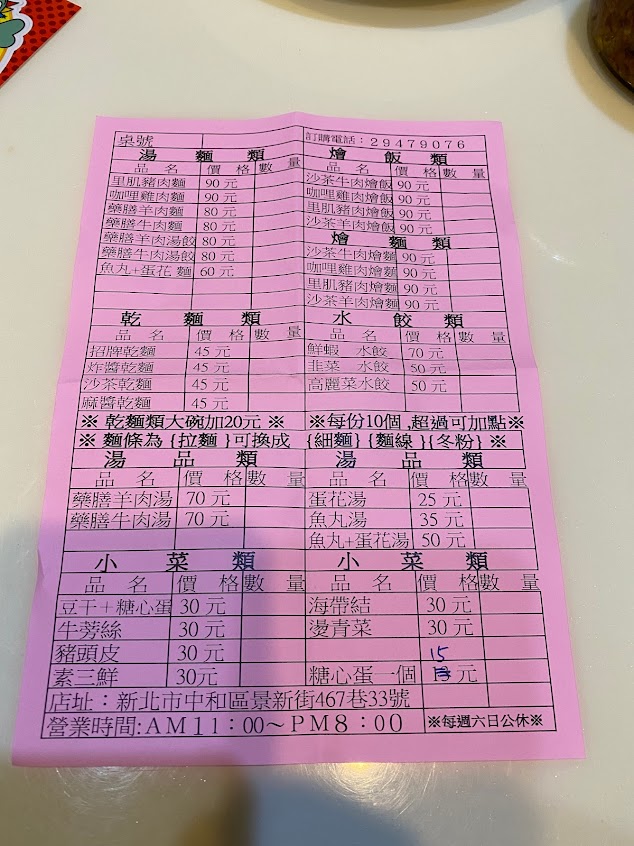 桌號 訂購電話：29479076
湯麵類 燴飯類
品名 價格 數量 品名 價格 數量
里肌豬肉麵 90元 沙茶牛肉燴飯 90元
咖哩雞肉麵 90元 咖哩雞肉燴飯 90元
藥膳羊肉麵 80元 里肌豬肉燴飯 90元
藥膳牛肉麵 80元 沙茶羊肉燴飯 90元
藥膳羊肉湯餃 80元 燴麵類
藥膳牛肉湯餃 80元 沙茶牛肉燴麵 90元
魚丸+蛋花麵 60元 咖哩雞肉燴麵 90元
里肌豬肉燴麵 90元
沙茶羊肉燴麵 90元
乾麵類 水餃類
品名 價格 數量 品名 價格 數量
招牌乾麵 45元 鮮蝦 水餃 70元
炸醬乾麵 45元 韭菜 水餃 50元
沙茶乾麵 45元 高麗菜水餃 50元
麻醬乾麵 45元
※ 乾麵類大碗加20元 ※ ※每份10個 ,超過可加點※
※ 麵條為 {拉麵 }可換成 {細麵} {麵線 }{冬粉} ※
湯品類 湯品類
品名 價格 數量 品名 價格 數量
藥膳羊肉湯 70元 蛋花湯 25元
藥膳牛肉湯 70元 魚丸湯 35元
魚丸+蛋花湯 50元
小菜類 小菜類
品名 價格 數量 品名 價格 數量
豆干＋糖心蛋 30元 海帶結 30元
牛蒡絲 30元 燙青菜 30元
豬頭皮 30元
素三鮮 30元 糖心蛋一個 15元
店址：新北市中和區景新街467巷33號
營業時間:AM11：00～PM8：00 ※每週六日公休※